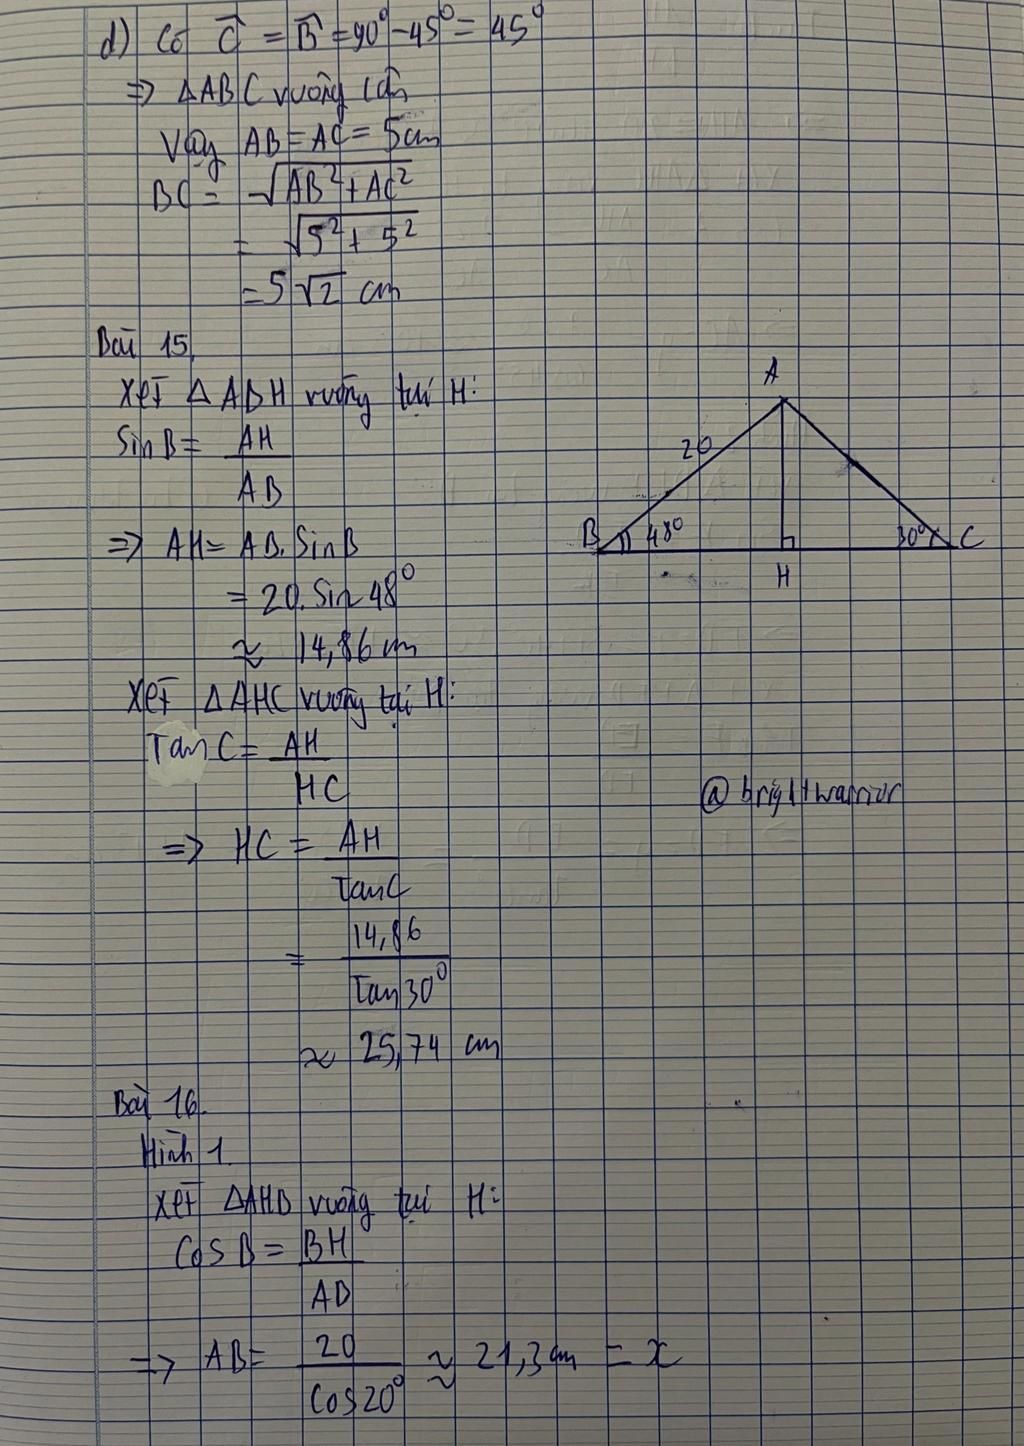 d) Có Ĉ = B̂ = 90° - 45° = 45°
=> ΔABC vuông cân
Vậy AB = AC = 5cm
BC = √AB² + AC²
= √5² + 5²
= 5√2 cm
Bài 15.
Xét Δ ABH vuông tại H:
Sin B = AH
AB
=> AH = AB. Sin B
= 20. Sin 48°
≈ 14,86 cm
Xét ΔAHC vuông tại H:
Tan C = AH
HC
=> HC = AH
Tan C
= 14,86
Tan 30°
≈ 25,74 cm
A
20
B 48° 30° C
H
@brightwarrior
Bài 16.
Hình 1.
Xét ΔAHB vuông tại H:
Cos B = BH
AB
=> AB = 20 ≈ 21,3 cm = x
Cos 20°